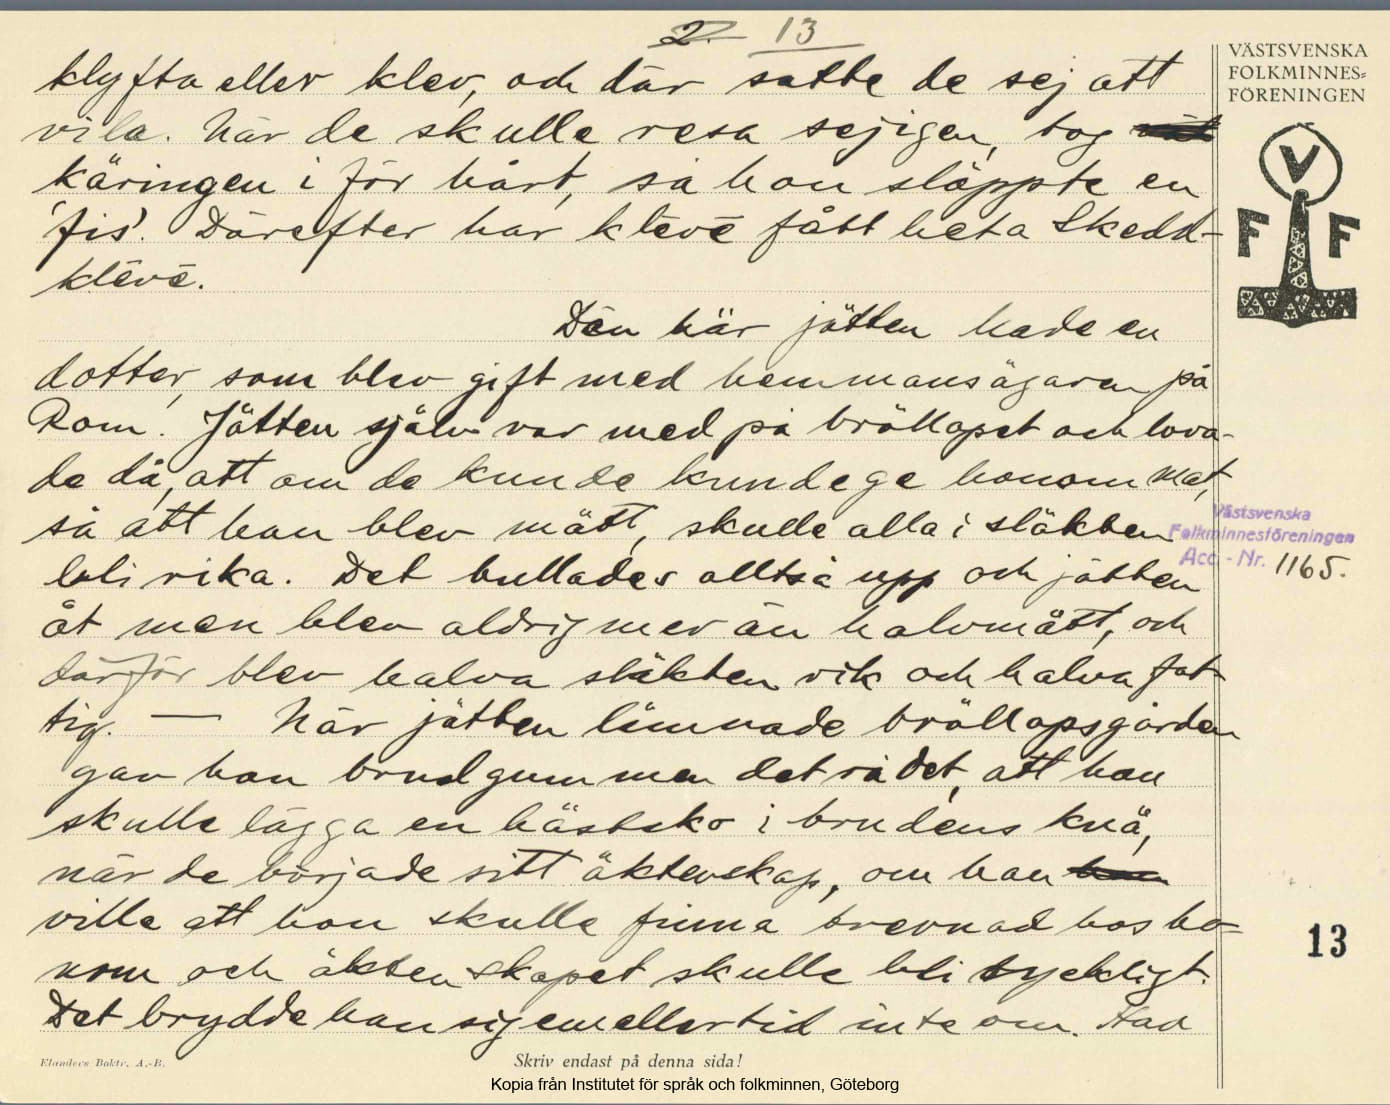 2. 13
VÄSTSVENSKA
FOLKMINNES-
FÖRENINGEN
V
F F
klyfta eller klev, och där satte de sej att
vila. När de skulle resa sej igen, tog
käringen i för hårt, så hon släppte en
'fis'. Därefter har klēvē fått heta Skedd-
klēvē.
Den här jätten hade en
dotter, som blev gift med hemmansägaren på
Rom. Jätten själv var med på bröllopet och lova-
de då, att om de kunde kunde ge honom mat,
så att han blev mätt, skulle alla i släkten
bli rika. Det hullades alltså upp och jätten
åt men blev aldrig mer än halvmätt, och
därför blev halva släkten rik och halva fat-
tig. — När jätten lämnade bröllopsgården
gav han brudgummen det rådet, att han
skulle lägga en hästsko i brudens knä,
när de började sitt äktenskap, om han
ville att hon skulle finna trevnad hos ho-
nom och äktenskapet skulle bli lyckligt.
Det brydde han sig emellertid inte om. Had
Västsvenska
Folkminnesföreningen
Acc.-Nr. 1165.
13
Elanders Boktr. A.-B.
Skriv endast på denna sida!
Kopia från Institutet för språk och folkminnen, Göteborg